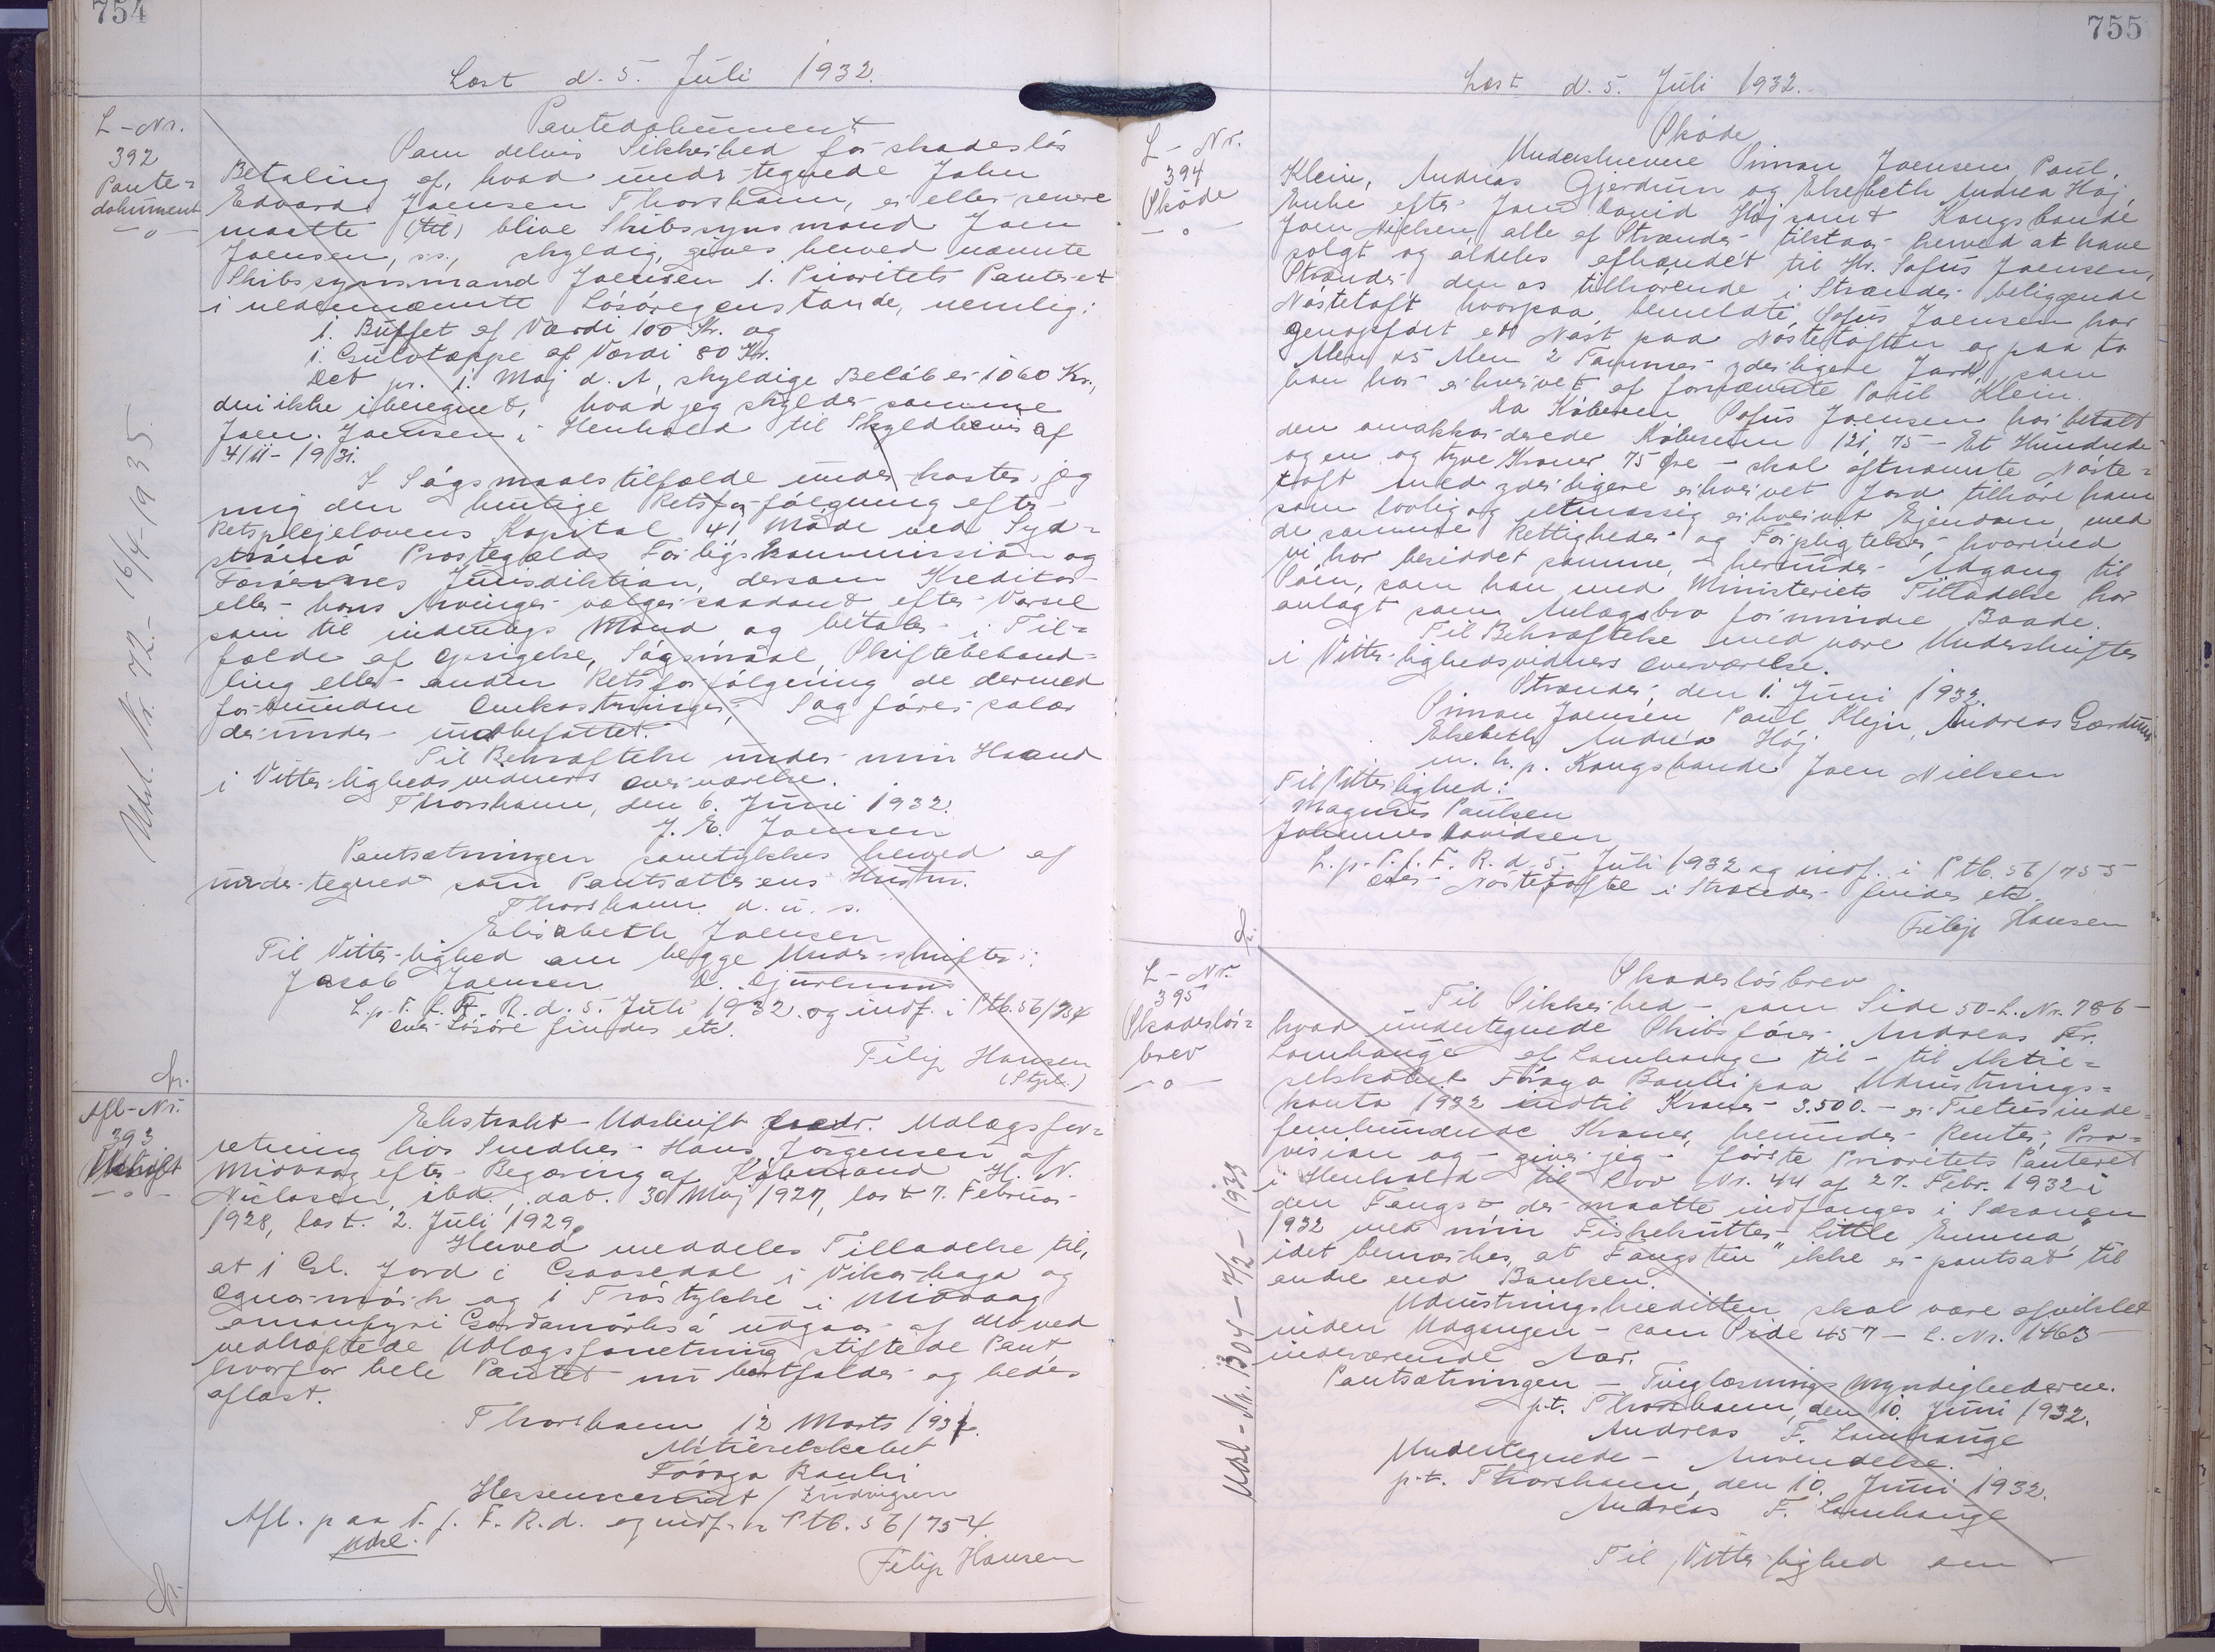 754
Læst d. 5. Juli 1932.
L-Nr.
392
Pante=
dokument
-o-
Pantedokument
Som delvis Sikkerhed for skadesløs
Betaling af, hvad undertegnede John
Edvard Joensen Thorshavn, er eller senere
maatte (til) blive Skibssynsmand Joen
Joensen, ss., skyldig, gives herved nævnte
Skibssynsmand Joensen 1. Prioritets Panteret
i nedennævnte Løsøregenstande, nemlig:
1. Buffet af Værdi 100 Kr. og
1. Gulvtæppe af Værdi 80 Kr.
Det pr. 1. Maj d. A. skyldige Beløb er 1060 Kr.,
deri ikke iberegnet, hvad jeg skylder samme
Joen Joensen i Henhold til Skyldbevis af
4/11-1931.
I Søgsmaalstilfælde underkaster jeg
mig den hurtige Retsforfølgning efter
Retsplejelovens Kapital 41 Møde ved Syd=
strømø Prostegælds Forligskommission og
Færøernes Jurisdiktion, dersom Kreditor
eller hans Arvinger vælger saadant efter Varsel
som til indenbygs Mænd og betaler i Til=
fælde af Opsigelse, Søgsmaal, Skiftebehand=
ling eller anden Retsforfølgning de dermed
forbundne Omkostninger, Sagførersalær
derunder indbefattet.
Til Bekræftelse under min Haand
i Vitterlighedsvidners Overværelse.
Thorshavn, den 6. Juni 1932.
J. E. Joensen
Pantsætningen samtykkes herved af
undertegnede som Pantsætterens Hustru.
Thorshavn d. u. s.
Elisabeth Joensen
Til Vitterlighed om begge Underskrifter:
Jacob Joensen D. Djurhuus
L. p. T. f. F. R. d. 5. Juli 1932 og indf. i Ptb. 56/754
Over Løsøre findes etc.
Filip Hansen
(Stpl.)
Udsl. Nr. 72 - 16/4-1935.
Afl-Nr.
393
Udskrift
-o-
Ekstrakt-Udskrift vedr. Udlægsfor=
retning hos Snedker Hans Jørgensen af
Midvaag efter Begæring af Købmand H. N.
Niclasen, ibd., dat. 30 Maj 1927, læst 7. Februar
1928, læst. 2. Juli 1929.
Herved meddeles Tilladelse til,
at 1 Gl. Jord i Gaasedal i Vikarhaga og
Ognarmørk og 1 Træstykke i Midvaag
omanfyri Gardamørksá udgaar af det ved
vedhæftede Udlægsforretning stiftede Pant,
hvorfor hele Pantet nu bortfalder og bedes
aflæst.
Thorshavn 12 Marts 1931.
Aktieselskabet
Føroya Banki
Hessenscmidt / Ludvigsen
Afl. paa T. f. F. R. d. og indf. i Ptb. 56/754.
Udsl.
Filip Hansen
755
Læst d. 5. Juli 1932.
L-Nr.
394
Skøde
-o-
Skøde
Underskrevne Simon Joensen, Paul
Klein, Andreas Gjerdum og Elsebeth Andrea Høj,
Enke efter Joen David Høj samt Kongsbonde
Joen Nielsen, alle af Strænder tilstaar herved at have
solgt og aldeles afhændet til Hr. Sofus Joensen,
Strænder den os tilhørende i Strænder beliggende
Nøstetoft hvorpaa bemeldte Sofus Joensen har
genopført et Nøst paa Nøstetoften og paa to
Alen x 5 Alen 2 Tommer yderligere Jord, som
han har erhvervet af fornævnte Paul Klein.
Da Køberen Sofus Joensen har betalt
den omakkorderede Købesum 121,75 - Et Hundrede
og en og tyve Kroner 75 Øre - skal oftnævnte Nøste=
toft med yderligere erhvervet Jord tilhøre ham
som lovlig og retmæssig erhvervet Ejendom, med
de samme Rettigheder og Forpligtelser, hvormed
vi har besiddet samme, - herunder Adgang til
Søen, som han med Ministeriets Tilladelse har
anlagt som Anlægsbro for mindre Baade.
Til Bekræftelse med vore Underskrifter
i Vitterlighedsvidners Overværelse.
Strænder, den 1. Juni 1932.
Simon Joensen Paul Klejn, Andreas Gærdum
Elsebeth Andrea Høj
m. h. p. Kongsbonde Joen Nielsen
Til Vitterlighed:
Magnus Paulsen
Johannes Davidsen
L. p. T. f. F. R. d. 5. Juli 1932 og indf. i Ptb. 56/755
Over Nøstetofte i Strænder findes etc.
Filip Hansen
L-Nr.
395
Skadesløs=
brev
-o-
Skadesløsbrev
Til Sikkerhed - som Side 50 - L. Nr. 786 -
hvad undertegnede Skibsfører Andreas Fr.
Lamhauge af Lamhauge til - til Aktie=
selskabet Føroya Banki paa Udrustnings=
konto 1932 indtil Kroner 3.500. - er Tretusinde
femhundrede Kroner, herunder Renter, Pro=
vision og - giver jeg - første Prioritets Panteret
i Henhold til Lov Nr. 44 af 27. Febr. 1932 i
den Fangst, der maatte indfanges i Sæsonen
1932 med min Fiskekutter "Little Emma",
idet bemærkes, at Fangsten "ikke er pantsat til
andre end Banken.
Udrustningskreditten skal være afviklet
inden Udgangen - som Side 457 - L. Nr. 1463 -
indeværende Aar.
Pantsætningen - Tinglæsningsmyndighederne.
p.t. Thorshavn, den 10. Juni 1932.
Andreas F. Lamhauge
Undertegnede - Anvendelse.
p.t. Thorshavn, den 10. Juni 1932.
Andreas F. Lamhauge
Til Vitterlighed om
Udsl-Nr. 1304 - 7/2 - 1933